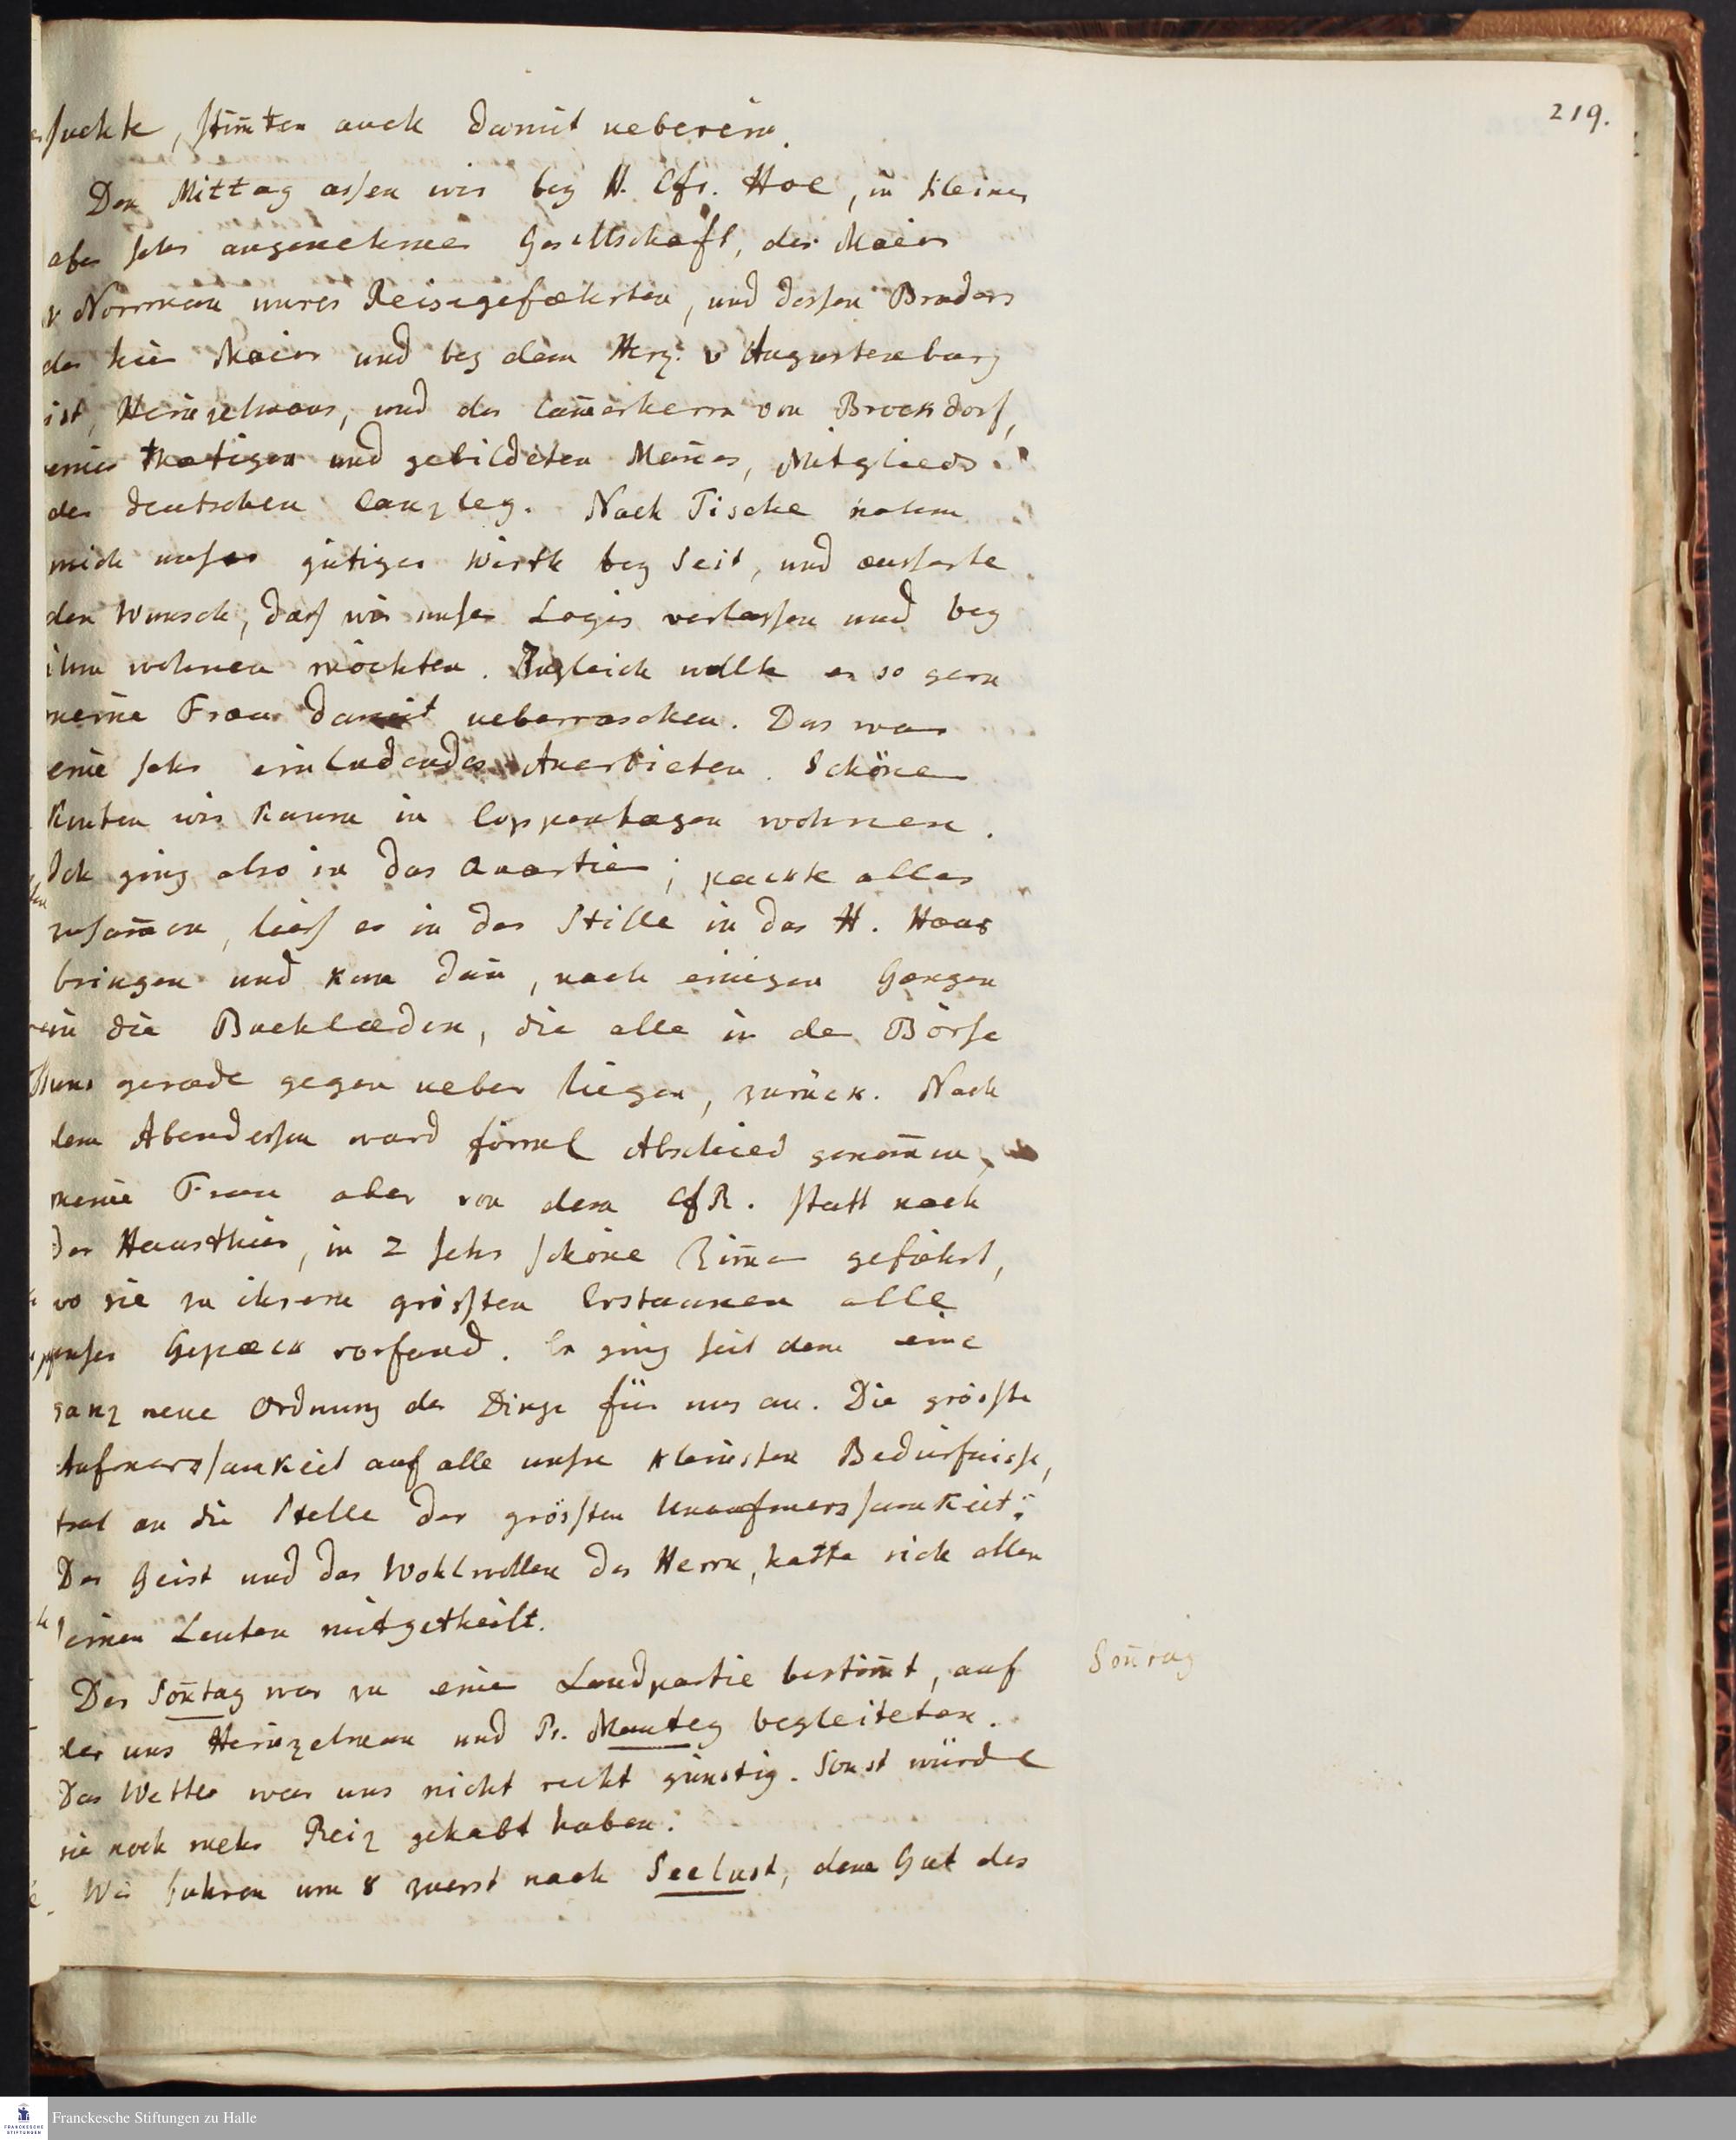 219.
suchte, stim̄ten auch damit ueberein.
Den Mittag assen wir bey H. Cfr. Hoe, in kleiner
aber sehr angenehmer Gesellschaft, der Maior
v Norrman unsres Reisegefæhrten, und dessen Bruders
der hier Maior und bey dem Herz. v Augustenburg
ist, Heinzelmans, und des Cam̄erherrn von Brocksdorf,
eines thætigen und gebildeten Man̄es, Mitglieds
der deutschen Canzley. Nach Tische nahm
mich unser gütiger Wirth bey Seit, und æusserte
den Wunsch, dass wir unser Logis verlassen und bey
ihm wohnen möchten. Zugleich wollte er so gern
meine Frau damit ueberraschen. Das war
ein sehr einladendes Anerbieten. Schöner
konten wir kaum in Coppenhagen wohnen.
Ich ging also in das Quartier, packte alles
zusam̄en, liess es in der Stille in das H. Haus
bringen und kam dan̄, nach einigen Gængen
in die Buchlæden, die alle in der Börse
uns gerade gegen ueber liegen, zurück. Nach
dem Abendessen ward förml Abschied genom̄en,
meine Frau aber von dem CfR. statt nach
der Hausthür, in 2 sehr schöne Zim̄er geführt,
wo sie zu ihrem grössten Erstaunen alle
unser Gepæck vorfand. Es ging seit dem eine
ganz neue Ordnung der Dinge für uns an. Die grösste
Aufmerksamkeit auf alle unsre kleinsten Bedürfnisse,
trat an die Stelle der grössten Unaufmerksamkeit.
Der Geist und das Wohlwollen des Herrn, hatte sich allen
seinen Leuten mitgetheilt.
Der Son̄tag war zu einer Landpartie bestim̄t, auf
Son̄tag
der uns Heinzelman und Pr. Mantey begleiteten.
Das Wetter war uns nicht recht günstig. Sonst würde
sie noch mehr Reiz gehabt haben.
Wir fuhren um 8 zuerst nach Seelust, dem Gut des
FRANCKESCHE STIFTUNGEN
Franckesche Stiftungen zu Halle